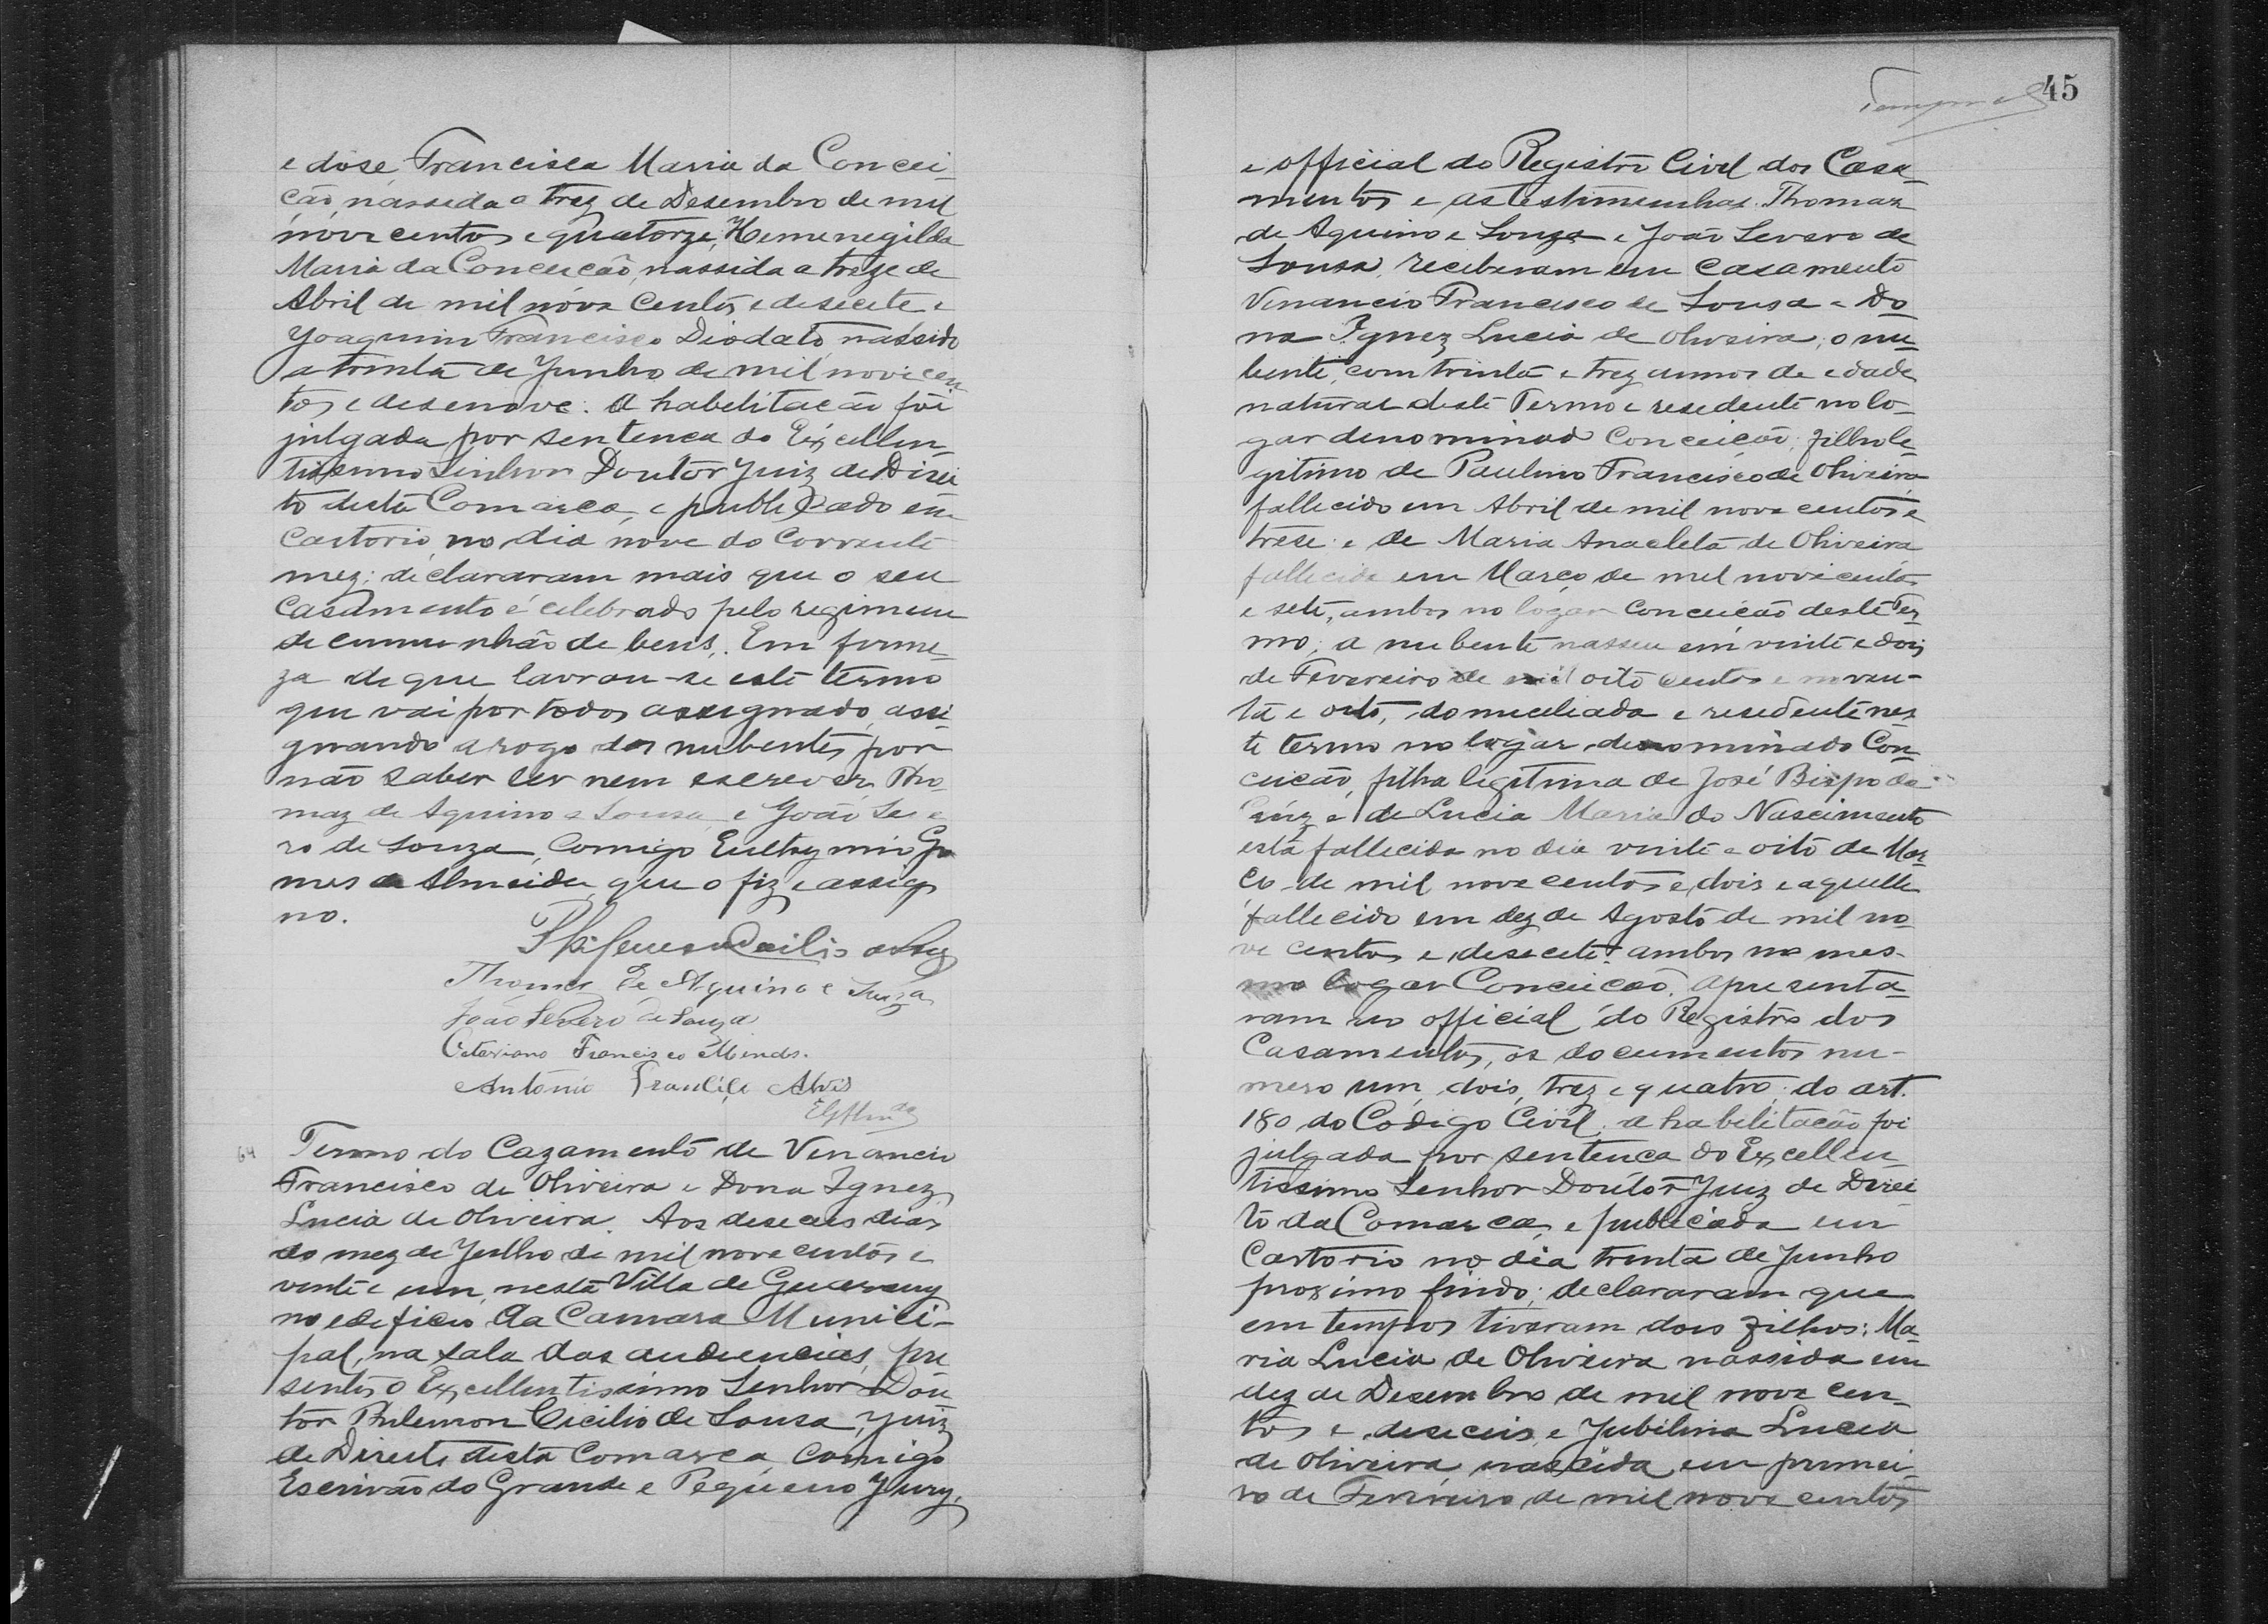 e dose, Francisca Maria da Concei-
ção, nassida a trez de Desembro de mil
nove centos e quatorze, Hemenegilda
Maria da Conceicão, nassida a treze de
Abril de mil nove centos e desecete e
Joaquim Francisco Diodato, nassido
a trinta de Junho de mil nove cen
tos e desenove. A habelitacão foi
julgada por sentenca do Excellen-
tissimo Senhor Doutor Juiz de Direi
to desta Comarca, e publicado em
Cartorio, no dia nove do Corrente
mez; declararam mais que o seu
Casamento é celebrado pelo regimem
de cumunhão de bens. Em firme-
za de que lavrou-se este termo
que vai por todos assignado, assi-
gnando a rogo dos nubentes por
não saber ler nem escrever, Tho-
maz de Aquino e Sousa e João Seve
ro de Souza, Comigo Eulthymio Go
mes de Almeida que o fiz e assig
no.
Thomaz de Aquino e Souza
João Severo de Souza
Octaviano Francisco Mendes.
Antonio Alves
64 Termo do Cazamento de Venancio
Francisco de Oliveira e Dona Ignez
Lucia de Oliveira. Aos deseceis dias
do mez de Julho de mil nove centos e
vinte e um, nesta Villa de Guarany
no edeficio da Camara Munici-
pal, na sala das audiencias, pre
sentes o Excellentissimo Senhor Dou
tor Philemon Cicilio de Sousa, Juiz
de Direito desta Comarca Comigo
Escrivão do Grande e Pequeno Jury,
45
e official do Registro Civil dos Casa-
mentos e as testimunhas Thomaz
de Aquino e Souza e João Severo de
Sousa, receberam em Casamento
Venancio Francisco de Sousa e Do
na Ignez Lucia de Oliveira; o nu-
bente, com trinta e trez annos de edade
natural deste Termo e resedente no lo-
gar denominado Conceicão, filho le-
gitimo de Paulino Francisco de Oliveira
fallecido em Abril de mil nove centos e
trese e de Maria Anacleta de Oliveira
fallecida em Março de mil nove centos
e sete, ambos no logar Conceicão deste Ter-
mo; a nubente nasseu em vinte e dois
de Fevereiro de mil oito centos e noven-
ta e oito, domiceliada e resedente nes
te termo no logar denominado Con-
ceicão, filha legitima de José Bispo da
Cruz e de Lucia Maria do Nascimento
esta fallecida no dia vinte e oito de Mar-
ço de mil nove centos e dois e aquelle
fallecido em dez de Agosto de mil no-
ve centos e desecete ambos no mes-
mo logar Conceicão. Apresenta-
ram ao official do Registro dos
Casamentos, os documentos nu-
mero um, dois, trez e quatro do art.
180 do Codigo Civil; a habelitacão foi
julgada por sentenca do Excellen-
tissimo Senhor Doutor Juiz de Direi
to da Comarca, e publecada em
Cartorio no dia trinta de Junho
proximo findo; declararam que
em tempos tiveram dois filhos: Ma-
ria Lucia de Oliveira nassida em
dez de Desembro de mil nove cen-
tos e deseceis e Jubilina Lucia
de Oliveira nascida em primei-
ro de Fevereiro de mil nove centos